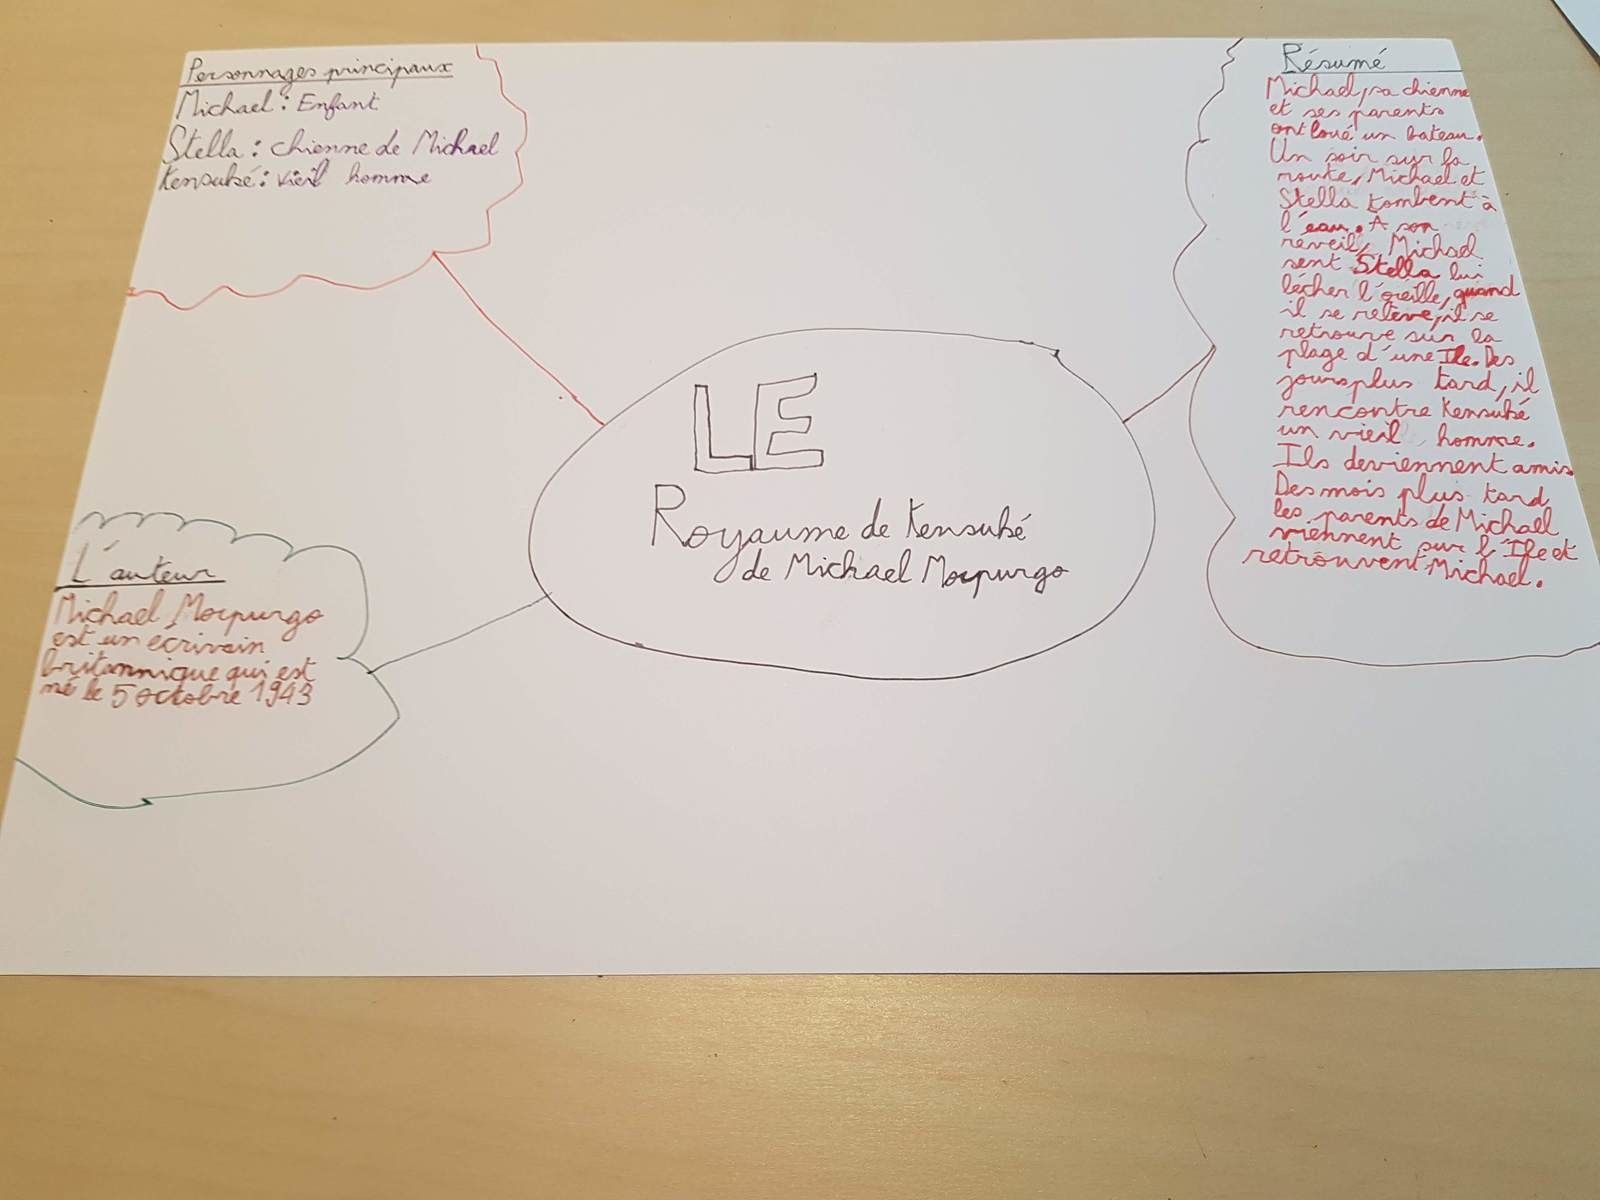 Personnages principaux
Michael : Enfant
Stella : chienne de Michael
Kensuké : vieil homme
LE
Royaume de Kensuké
de Michael Morpurgo
L'auteur
Michael Morpurgo
est un ecrivain
britannique qui est
né le 5 octobre 1943
Résumé
Michael, sa chienne
et ses parents
ont loué un bateau.
Un soir sur la
route, Michael et
Stella tombent à
l'eau. A son
réveil, Michael
sent Stella lui
lécher l'oreille, quand
il se relève, il se
retrouve sur la
plage d'une Ile. Des
jours plus tard, il
rencontre Kensuké
un vieil homme.
Ils deviennent amis
Des mois plus tard
les parents de Michael
viennent sur l'Ile et
retrouvent Michael.